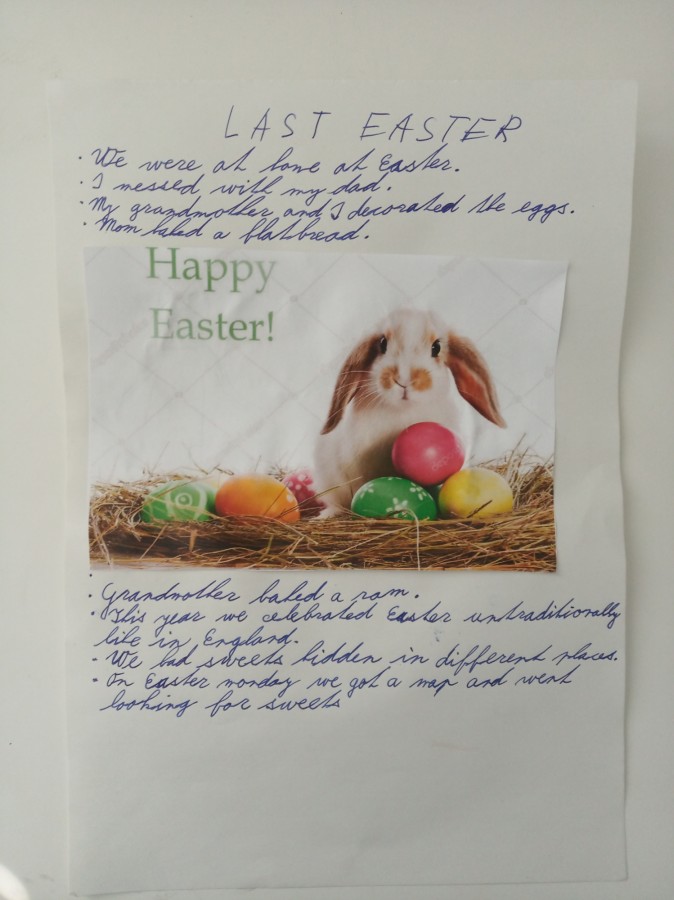 LAST EASTER
· We were at home at Easter.
· I messed with my dad.
· My grandmother and I decorated the eggs.
· Mom baked a flatbread.
Happy
Easter!
·
· Grandmother baked a ram.
· This year we celebrated Easter untraditionally
like in England.
- We had sweets hidden in different places.
· On Easter monday we got a map and went
looking for sweets